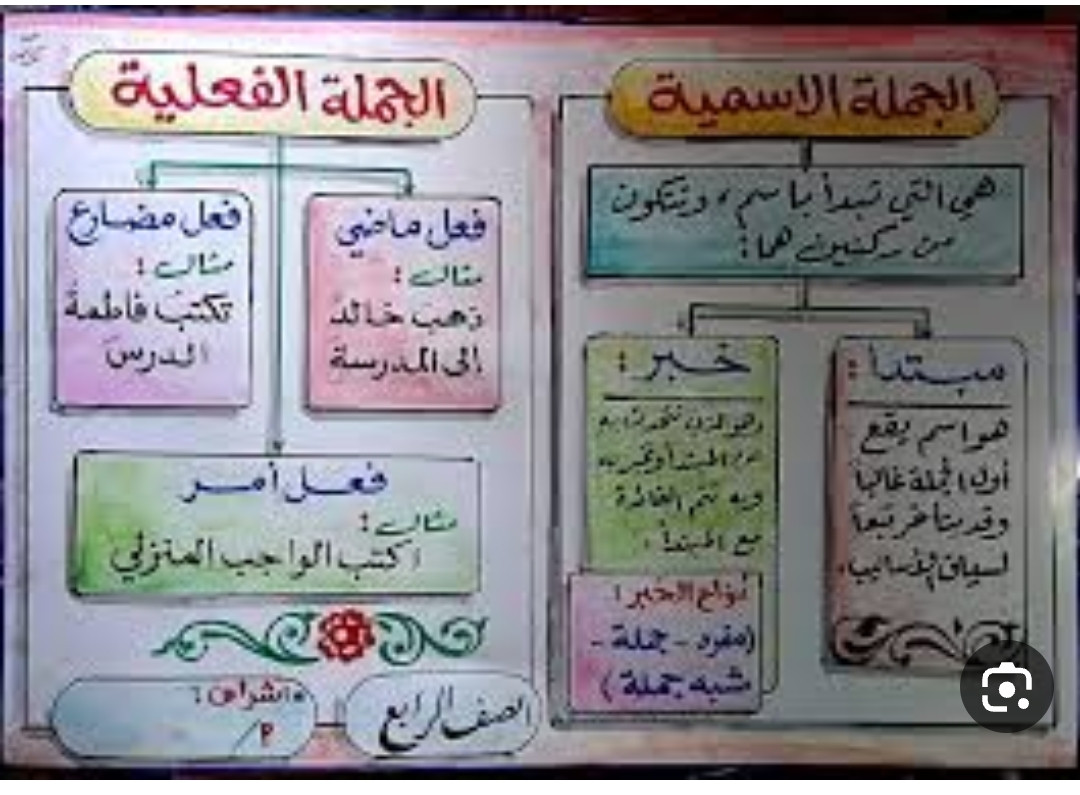 الجملة الاسمية
هي التي تبدأ باسم، وتتكون
من ركنين هما:
مبتدا:
هو اسم يقع
أول الجملة غالباً
وقد يتأخر تبعاً
لسياق الأساليب.
خبر:
وهو الذي نتحدث به
عن المبتدأ ونخبر به
وبه تتم الفائدة
مع المبتدأ.
أنواع الخبر:
(مفرد - جملة -
شبه جملة)
الجملة الفعلية
فعل ماضي
مثال:
ذهب خالدٌ
الى المدرسة
فعل مضارع
مثال:
تكتبُ فاطمةُ
الدرسَ
فعل أمر
مثال:
اكتب الواجب المنزلي
الصف الرابع
اشراف:
م/